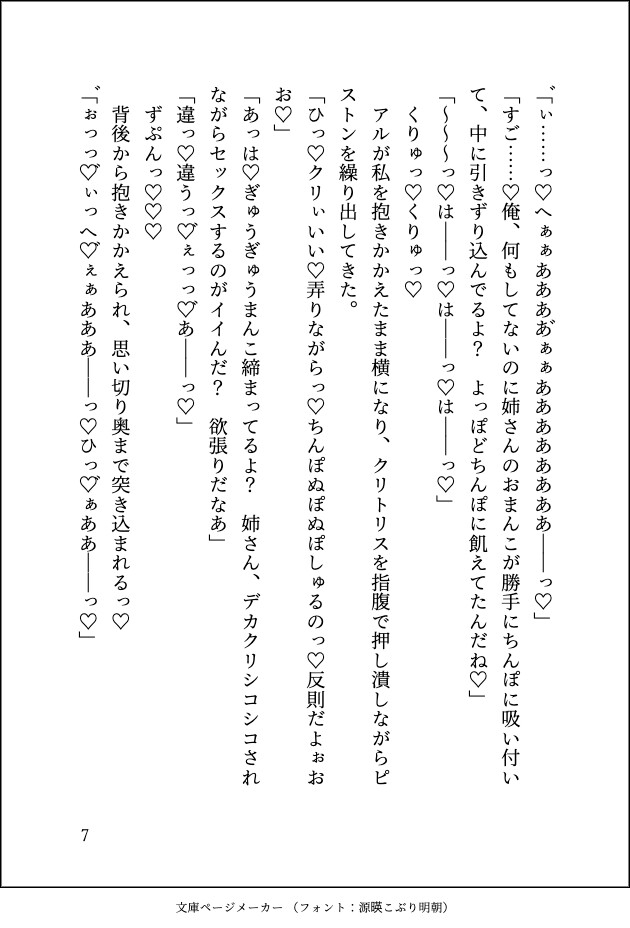 ゛ぃ……っ♡へぁぁあああ゛ぁぁああああああああ――っ♡」
「すご……♡俺、何もしてないのに姉さんのおまんこが勝手にちんぽに吸い付い
て、中に引きずり込んでるよ？　よっぽどちんぽに飢えてたんだね♡」
「～～～っ♡は――っ♡は――っ♡は――っ♡」
くりゅっ♡くりゅっ♡
アルが私を抱きかかえたまま横になり、クリトリスを指腹で押し潰しながらピ
ストンを繰り出してきた。
「ひっ♡クリぃいい♡弄りながらっ♡ちんぽぬぽぬぽしゅるのっ♡反則だよぉお
お♡」
「あっは♡ぎゅうぎゅうまんこ締まってるよ？　姉さん、デカクリシコシコされ
ながらセックスするのがイイんだ？　欲張りだなあ」
「違っ♡違うっ♡゛ぇっっ♡゛あ――っ♡」
ずぷんっ♡♡♡
背後から抱きかかえられ、思い切り奥まで突き込まれるっ♡
「゛ぉっっ♡゛ぃっへ♡゛ぇぁあああ――っ♡ひっ♡゛ぁああ――っ♡」
7
文庫ページメーカー （フォント：源暎こぶり明朝）